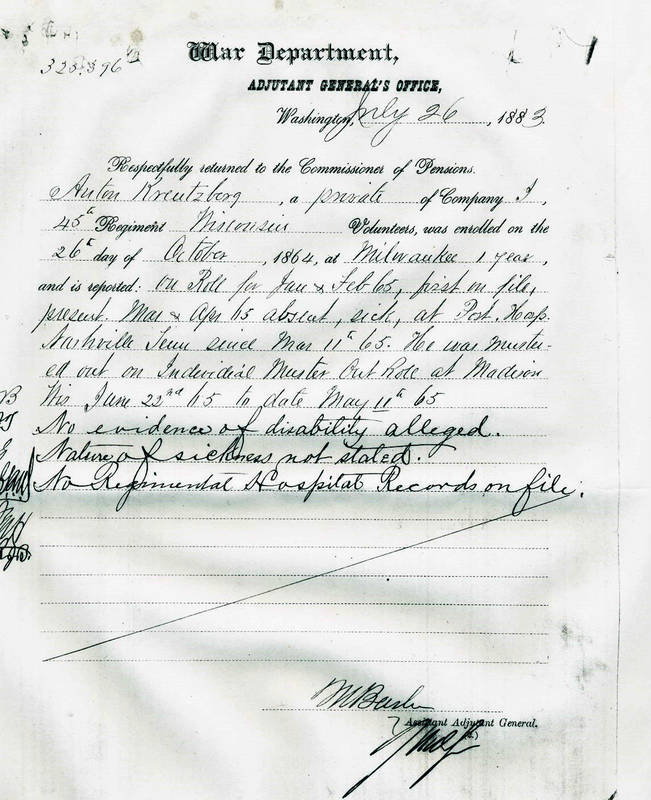 War Department,
ADJUTANT GENERAL'S OFFICE,
Washington, July 26, 1883.
Respectfully returned to the Commissioner of Pensions.
Anton Kreutzberg, a private of Company I,
45th Regiment Wisconsin Volunteers, was enrolled on the
26th day of October, 1864, at Milwaukee 1 year,
and is reported: on Roll for Jan & Feb 65, first on file,
present. Mar & Apr 65 absent, sick, at Post. Hosp.
Nashville Tenn since Mar 11th 65. He was muster-
ed out on Individual Muster Out Roll at Madison
Wis June 22nd 65 to date May 11th 65
No evidence of disability alleged.
Nature of sickness not stated.
No Regimental Hospital Records on file.
Assistant Adjutant General.